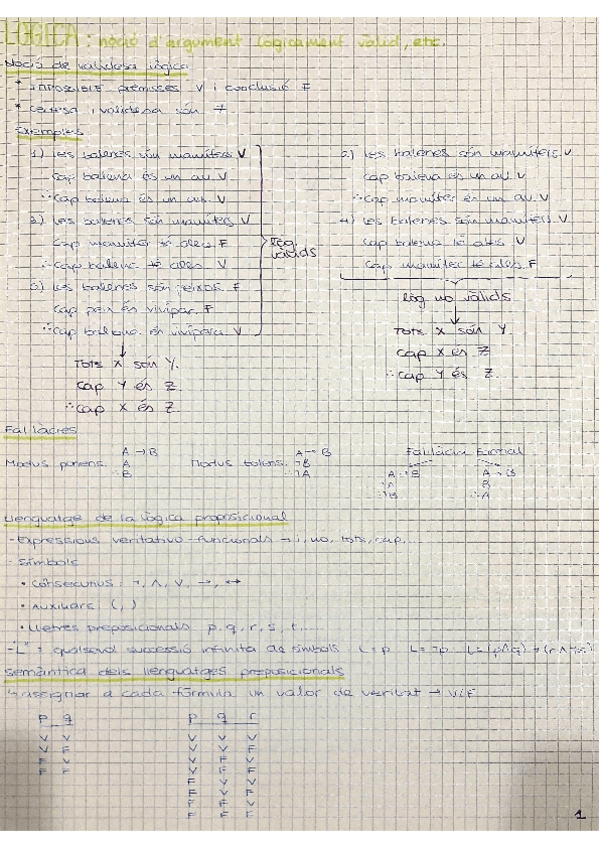 LÒGICA: noció d'argument lògicament vàlid, etc.
Noció de validesa lògica
* impossible premisses V i conclusió F
* certesa i validesa són ≠
Exemples
1) Les balenes són mamífers V
Cap balena és un au V
∴ Cap balena és un au V
2) Les balenes són mamífers V
Cap mamífer té ales F
∴ Cap balena té ales V
3) Les balenes són peixos F
Cap peix és vivípar F
∴ Cap balena és vivípara V
Lòg. vàlids
Tots X són Y.
Cap Y és Z.
∴ Cap X és Z
2) Les balenes són mamífers V
Cap balena és un au V
∴ Cap mamífer és un au V
4) Les balenes són mamífers V
Cap balena té ales V
Cap mamífer té ales F
Lòg no vàlids
Tots X són Y.
Cap X és Z
∴ Cap Y és Z
Fal·làcies
Modus ponens.
A → B
A
∴ B
Modus tolens.
A → B
¬B
∴ ¬A
Fal·làcia formal
A → B
¬A
∴ ¬B
A → B
B
∴ A
Llenguatge de la lògica proposicional
- Expressions veritativo-funcionals → i, no, tots, cap,...
- Símbols
• Consecutius: ¬, ∧, ∨, →, ↔
• Auxiliars: (, )
• Lletres proposicionals p, q, r, s, t.....
- L = qualsevol successió infinita de símbols L=p L=¬p
Semàntica dels llenguatges proposicionals
↳ assignar a cada fórmula un valor de veritat → V/F
p q
V V
V F
F V
F F
p q r
V V V
V V F
V F V
V F F
F V V
F V F
F F V
F F F
1